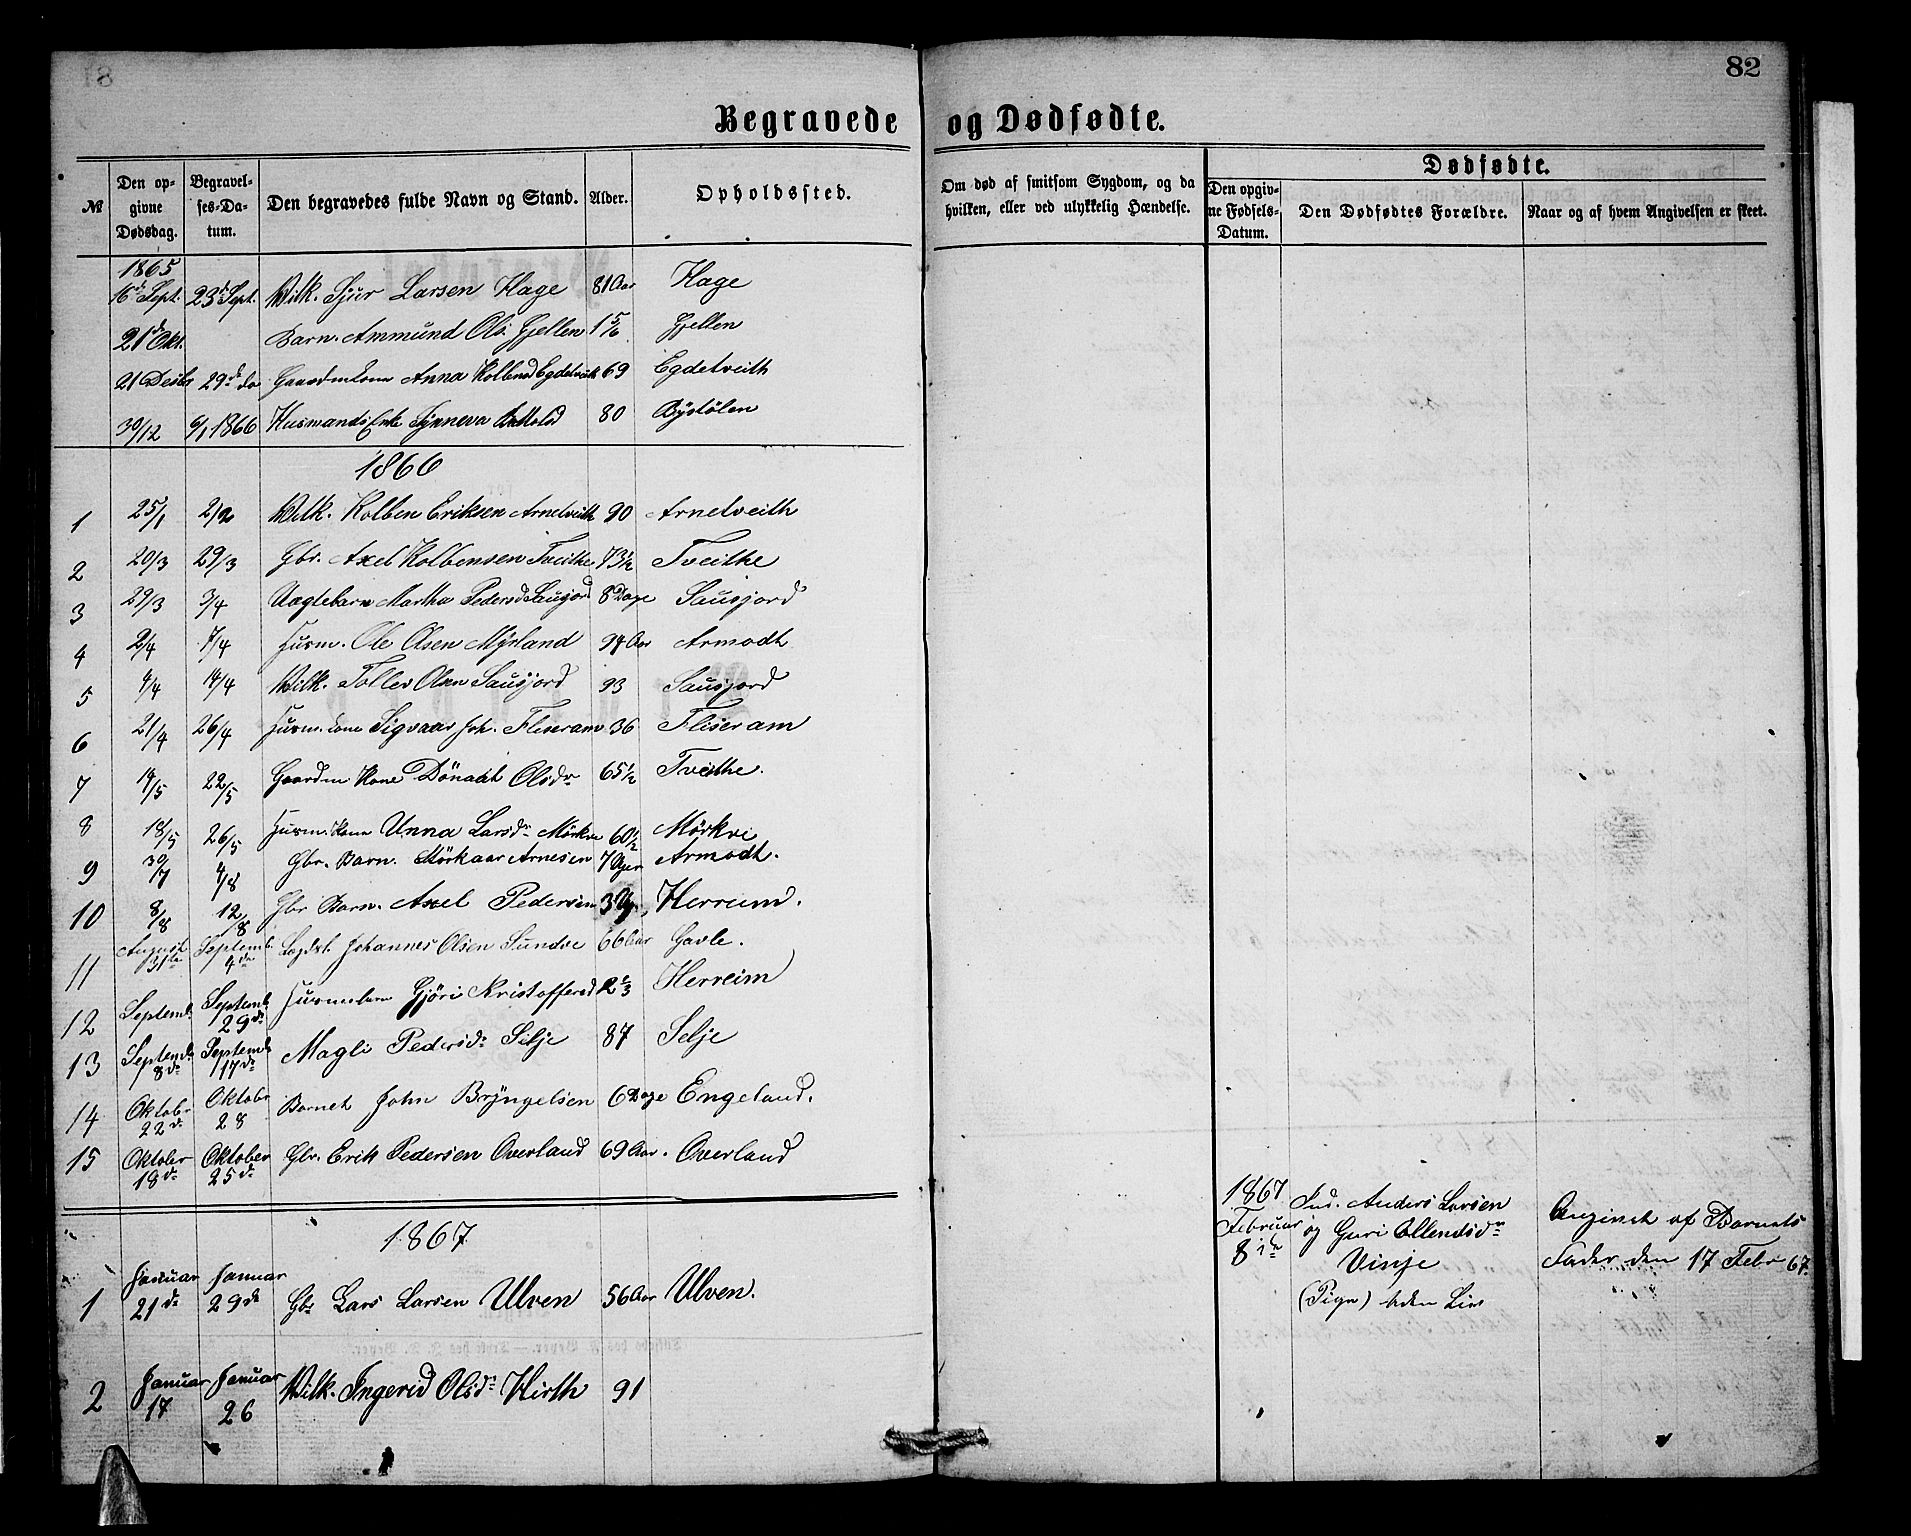 82
Begravede og Dødfødte.
№
Den opgivne Dødsdag.
Begravelses-Datum.
Den begravedes fulde Navn og Stand.
Alder.
Opholdssted.
Om død af smitsom Sygdom, og da hvilken, eller ved ulykkelig Hændelse.
Dødfødte.
Den opgivne Fødsels-Datum.
Den Dødfødtes Forældre.
Naar og af hvem Angivelsen er skeet.
1865
16de Sept. 23de Sept. Vilk. Sjur Larsen Hage 81 Aar Hage
21de Okt. Barn. Ammund Ols. Gjellen 1 5/6 Gjellen
21 Desbr 29de do Gaardmkone Anna Kolbensd Egdetveith 69 Egdetveith
30/12 6/1 1866 Husmands Enke Synneva 80 Bystölen
1866
1 25/1 2/2 Vilk. Kolben Eriksen Arnetveith 90 Arnetveith
2 20/3 29/3 Gbr. Axel Kolbensen Tveithe 73½ Tveithe
3 29/3 3/4 Uægtebarn Martha Pedersd Sausjord 8 Dage Sausjord
4 2/4 7/4 Husm. Ole Olsen Myrland 94 Aar Armodt
5 4/4 14/4 Vilk. Tollev Olsen Sausjord 93 Sausjord
6 21/4 26/4 Husm. kone Sigvaar Joh. Fliseram 36 Fliseram
7 14/5 22/5 Gaardm Kone Dönaat Olsdr 65½ Tveithe.
8 18/5 26/5 Husm. Kone Unna Larsdr Mörkve 60½ Mörkvi
9 30/7 4/8 Gbr. Barn. Mörkaar Arnesen 7 Uger Armodt.
10 8/8 12/8 Gbr Barn. Axel Pedersen 3 Ug. Herreim.
11 August 31te Septemb. 4de Lægdsl. Johannes Olsen Sundve 66 Aar Gavle.
12 Septemb. Septemb. 29de Husmsbarn Gjöri Kristoffersd 2 2/3 Herreim
13 Septemb 8de Septemb 17de Magli Pedersdr Selje 87 Selje
14 Oktobr 22de Oktobr 28 Barnet John Bryngelsen 6 Dage Engeland.
15 Oktober 18de Oktober 25de Gbr. Erik Pedersen Overland 69 Aar. Overland
1867
1 Januar 21de Januar 29de Gbr Lars Larsen Ulven 56 Aar Ulven.
2 Januar 17 Januar 26 Vilk. Ingerid Olsdr Hirth 91
1867 Februar 8de
Ind. Anders Larsen
og Guri Ellendsdr
Vinje
(Pige) uden Liv
Angivet af Barnets
Fader den 17 Febr 67.